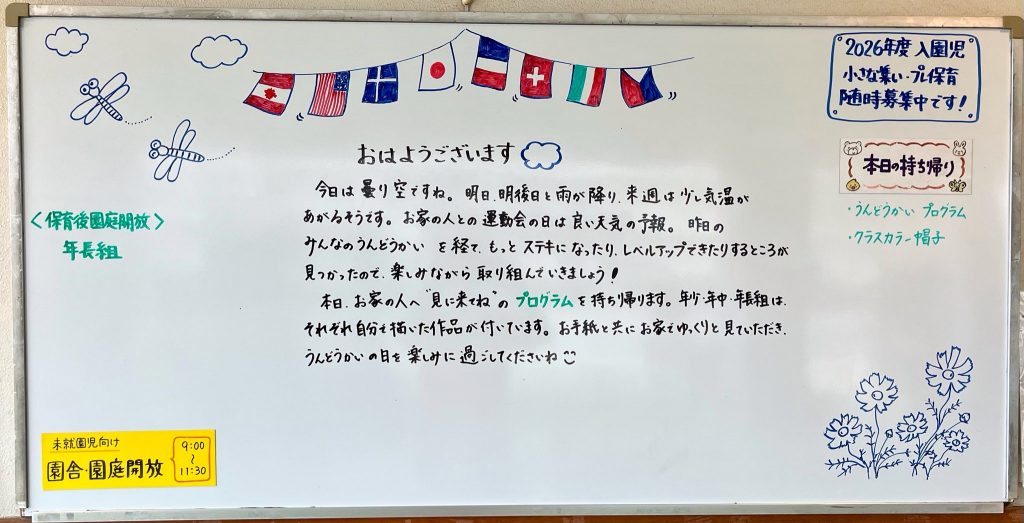 2026年度 入園児
小さな集い・プレ保育
随時募集中です！
おはようございます
今日は曇り空ですね。明日、明後日と雨が降り、来週は少し気温が
あがるそうです。お家の人との運動会の日は良い天気の予報。昨日の
みんなのうんどうかい を経て、もっとステキになったり、レベルアップできたりするところが
見つかったので、楽しみながら取り組んでいきましょう！
本日、お家の人へ"見に来てね"のプログラムを持ち帰ります。年少・年中・年長組は、
それぞれ自分で描いた作品が付いています。お手紙と共にお家でゆっくりと見ていただき、
うんどうかいの日を楽しみに過ごしてくださいね
本日の持ち帰り
・うんどうかい プログラム
・クラスカラー帽子
〈保育後園庭開放〉
年長組
未就園児向け
園舎・園庭開放
9:00
〜
11:30